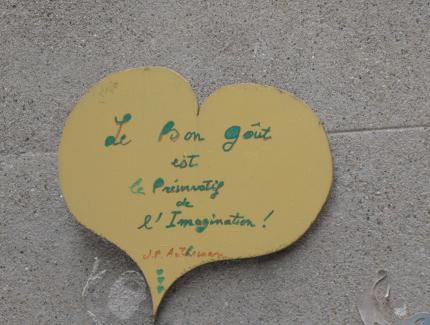 Le Bon goût
est
le Préservatif
de
l'Imagination !
J.P.